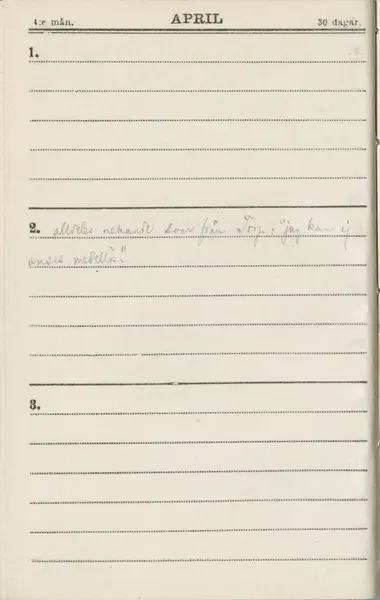 4:e mån. APRIL 30 dagar.
1.
2. alldeles nekande svar från : "jag kan ej
anses medellös."
3.